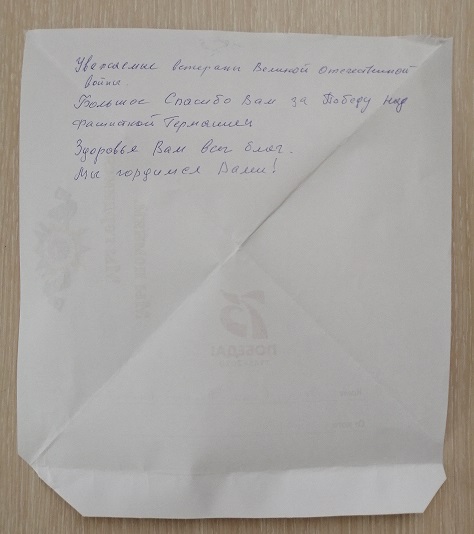 Уважаемые ветераны Великой Отечественной
войны.
Большое Спасибо Вам за Победу над
фашисткой Германией
Здоровья Вам всех благ.
Мы гордимся Вами!
75
ПОБЕДА!